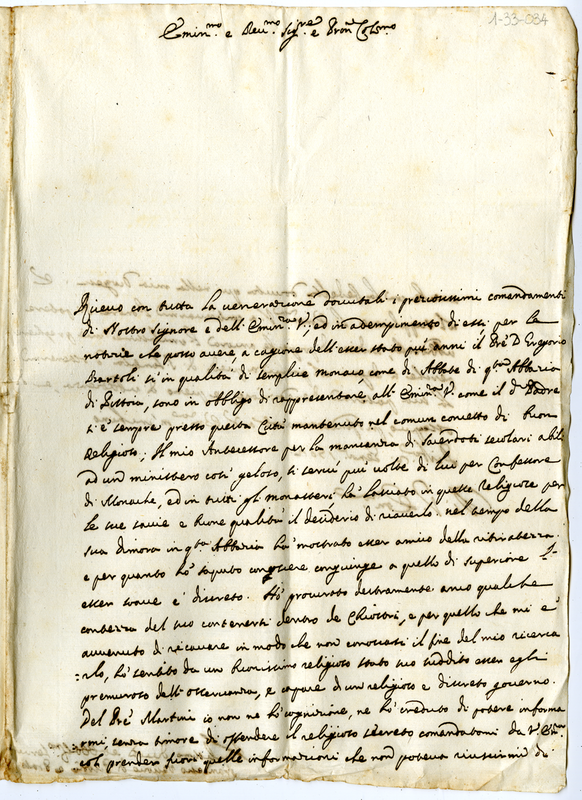 1-33-034
Emin.mo e Rev.mo Sig.re e Pron Col.mo
Ricevo con tutta la venerazione dovuta li i preziosissimi comandamenti
di Nostro Signore e dell' Emin.za V.; ed in adempimento di essi per le
notizie che posso avere a cagione dell' esser stato più anni il Pre D. Gregorio
Bartoli sì in qualità di semplice monaco come di Abbate di q.ta Abbazia
di Pistoia, sono in obbligo di rappresentare all' Emin.za V. come il d.o Padre
si è sempre presso questa Città mantenuto nel comun concetto di buon
Religioso; Il mio Antecessore per la mancanza di Sacerdoti secolari abili
ad un ministero così geloso, si servì più volte di lui per Confessore
di Monache, ed in tutti gli monasteri ha lasciato in quelle Religiose per
le sue savie e buone qualità il desiderio di riaverlo. nel tempo della
sua dimora in q.ta Abbazia ha mostrato esser amico della ritiratezza.
e per quanto ho saputo conoscere congiunge a quello di superiore l'
esser soave e discreto. Ho procurato destramente anco qualche
contezza del suo contenersi dentro de Chiostri, e per quello che mi è
avvenuto di ricavare in modo che non conoscasi il fine del mio ricerca
:rlo, ho sentito da un buonissimo religioso stato suo suddito esser egli
premuroso dell' osservanza, e capace d' un religioso e discreto governo.
Del Pre Martini io non ne ho cognizione, ne ho creduto di potere informa
rmi, senza timore di offendere il religioso secreto comandatomi da V. Em.za
col prender fuori quelle informazioni che non poteva riuscirmi di